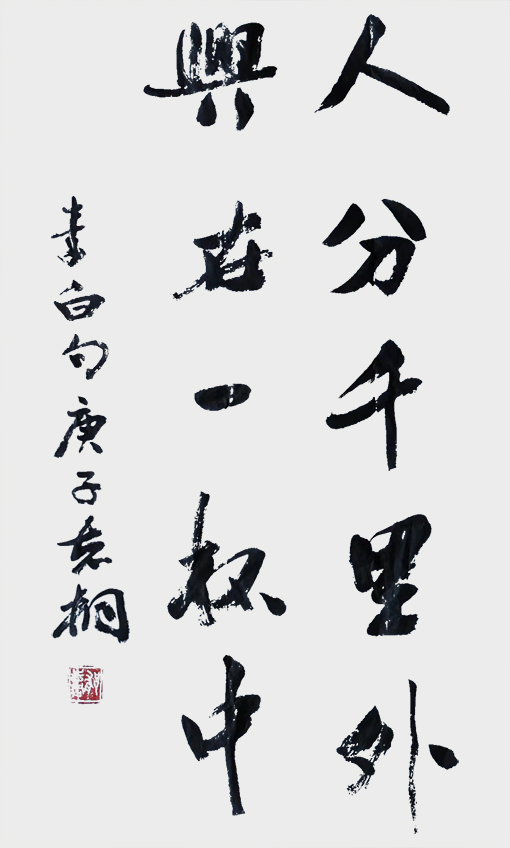 人分千里外
興在一杯中
李白句庚子